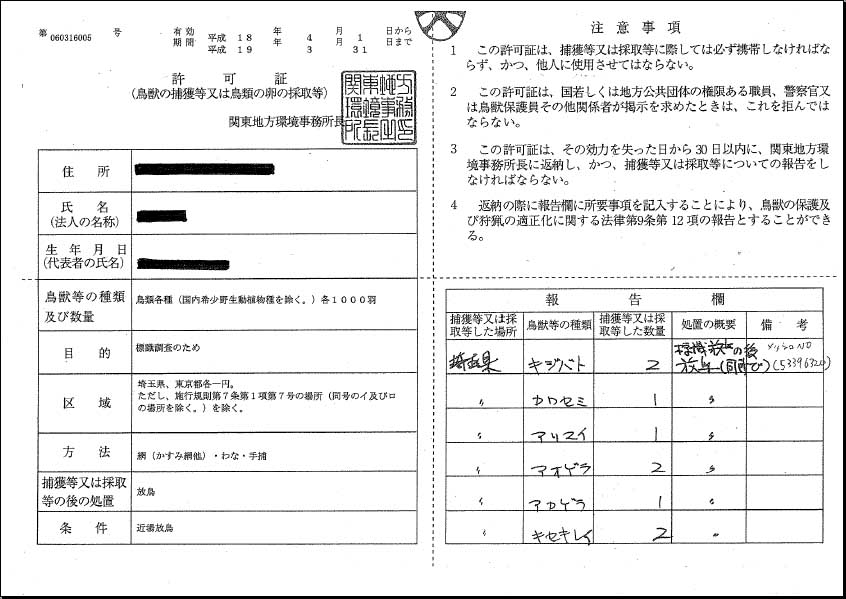 第 060316005 号
有効期間 平成 18 年 4 月 1 日から
平成 19 年 3 月 31 日まで
許可証
(鳥獣の捕獲等又は鳥類の卵の採取等)
関東地方環境事務所長
住所
氏名
(法人の名称)
生年月日
(代表者の氏名)
鳥獣等の種類
及び数量
鳥類各種(国内希少野生動植物種を除く。)各1000羽
目的
標識調査のため
区域
埼玉県、東京都各一円。
ただし、施行規則第7条第1項第7号の場所(同号のイ及びロ
の場所を除く。)を除く。
方法
網(かすみ網他)・わな・手捕
捕獲等又は採取
等の後の処置
放鳥
条件
近場放鳥
注意事項
1 この許可証は、捕獲等又は採取等に際しては必ず携帯しなければな
らず、かつ、他人に使用させてはならない。
2 この許可証は、国若しくは地方公共団体の権限ある職員、警察官又
は鳥獣保護員その他関係者が掲示を求めたときは、これを拒んでは
ならない。
3 この許可証は、その効力を失った日から30日以内に、関東地方環
境事務所長に返納し、かつ、捕獲等又は採取等についての報告をし
なければならない。
4 返納の際に報告欄に所要事項を記入することにより、鳥獣の保護及
び狩猟の適正化に関する法律第9条第12項の報告とすることができ
る。
報告欄
捕獲等又は採取等した場所 鳥獣等の種類 捕獲等又は採取等した数量 処置の概要 備考
埼玉県 キジバト 2 の後放鳥 メッシュNO (53396320)
〃 カワセミ 1 〃
〃 アリスイ 1 〃
〃 アオゲラ 2 〃
〃 アカゲラ 1 〃
〃 キセキレイ 2 〃